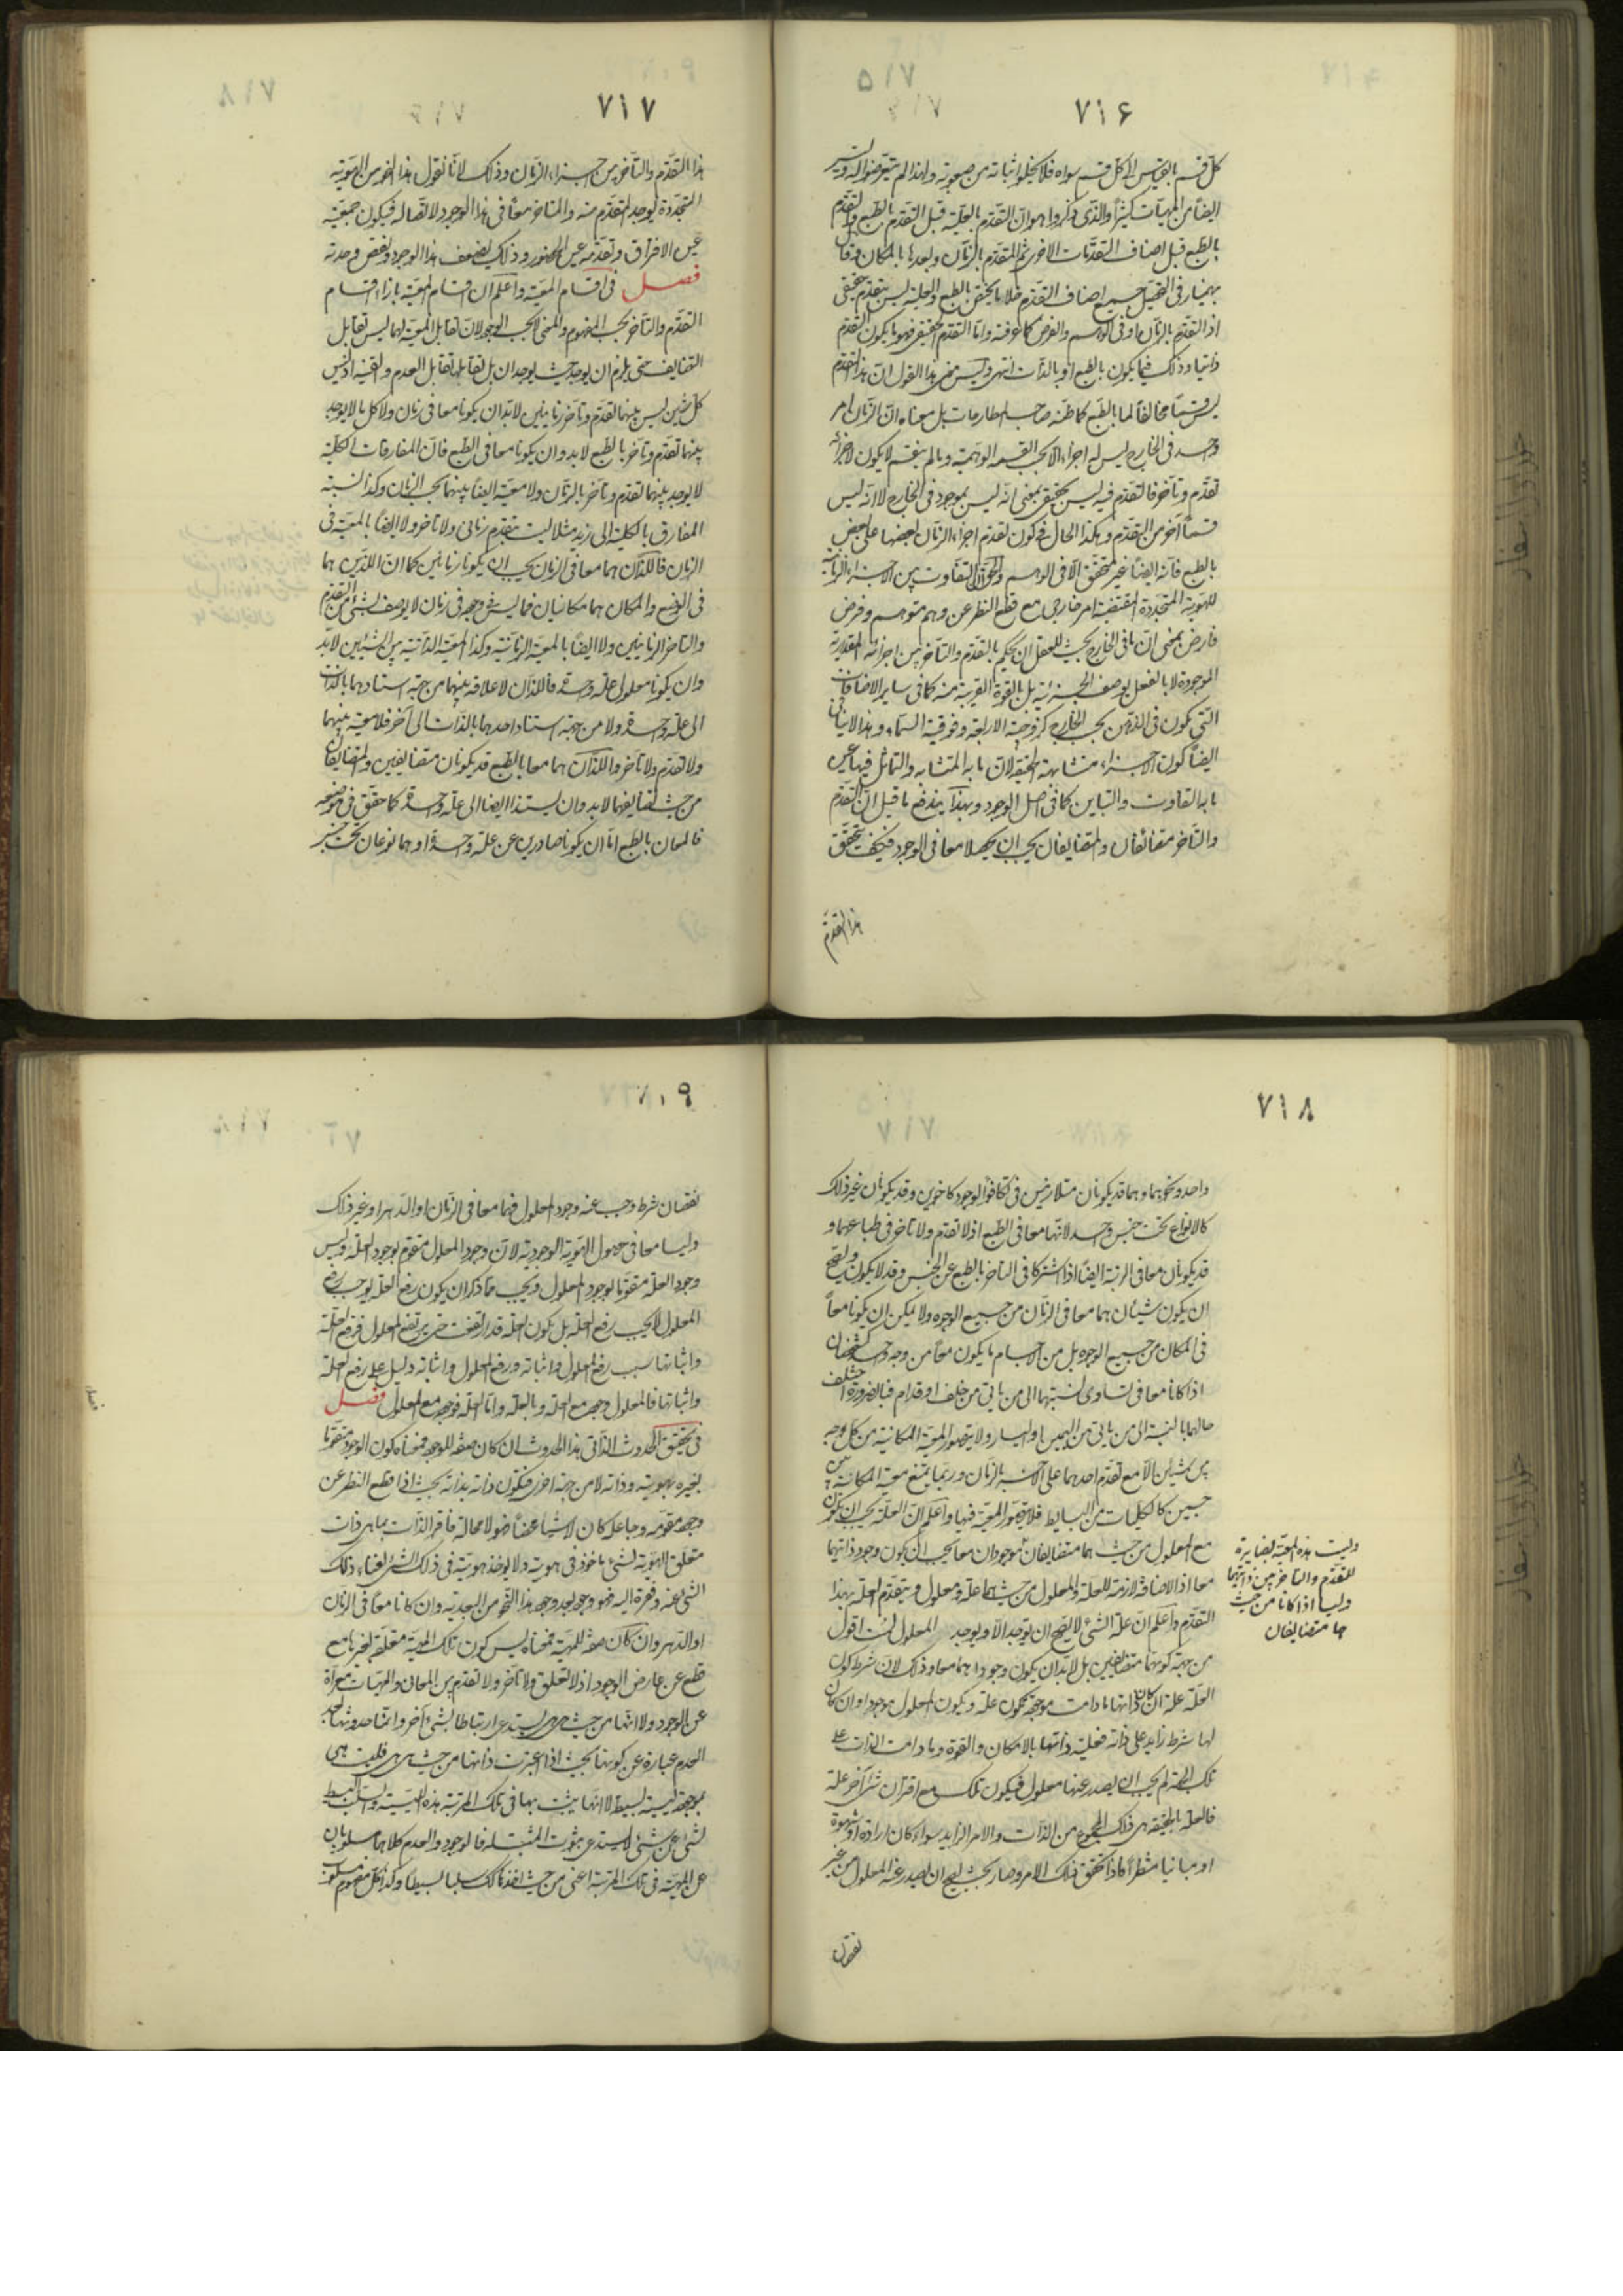 ٧١۶
كل قسم بالقياس الى كل قسم سواه فلا يخلو اثباته من صعوبة ولهذا لم يتعرضوا له
ايضاً من المهيات كثيراً والذى ذكروا هو ان التقدم بالعلية قبل التقدم بالطبع والتقدم
بالطبع قبل اصناف التقدمات الاخرى ثم المتقدم بالزمان وبعدها بالمكان وقال
بهمنيار فى التحصيل جميع اصناف التقدم فلا ما يختص بالطبع والعلية ليس بتقدم حقيقى
اذ التقدم بالزمان او فى الوهم والفرض كما عرفته واما التقدم الحقيقى فهو ما يكون التقدم
ذاتيا وذلك فيما يكون بالطبع او بالذات انتهى وليس معنى هذا القول ان هذا التقدم
ليس قسماً مخالفاً لما بالطبع كما ظنه صاحب المطارحات بل معناه ان الزمان امر
وحد فى الخارج ليس له اجزاء الا بحسب القسمه الوهمية وما لم ينقسم لا يكون لاجزائه
تقدم وتأخر فالتقدم فيه ليس بحقيقى بمعنى انه ليس بموجود فى الخارج لا انه ليس
قسماً آخر من التقدم وهكذا الحال فى كون تقدم اجزاء الزمان بعضها على بعض
بالطبع فانه ايضاً غير متحقق الا فى الوهم والحق ان التفاوت بين الاجزاء الزمانية
للهوية المتجددة المقتضية امر خارجى مع قطع النظر عن وهم متوهم وفرض
فارض بمعنى ان ما فى الخارج بحيث للعقل ان يحكم بالتقدم والتأخر بين اجزائه المقدارية
الموجودة لا بالفعل بوصف الجزئية بل بالقوة القريبة منه كما فى ساير الاضافات
التى يكون فى الذهن بحسب الخارج كزوجية الاربعة وفوقية السماء وهذا لا ينافى
ايضاً كون الاجزاء متشابهة الحقيقة لان ما به المتشابه والتماثل فيها عين
ما به التفاوت والتباين كما فى اصل الوجود وبهذا يندفع ما قيل ان التقدم
والتأخر متضائفان والمتضايفان يجب ان يحصلا معا فى الوجود فكيف يتحقق
هذا التقدم
٧١٧
هذا التقدم والتأخر من اجزاء الزمان وذلك لانا نقول هذا النحو من الهوية
المتجددة يوجد المتقدم منه والمتأخر معاً فى هذا الوجود لاتصاله فيكون جمعيته
عين الافتراق وتقدمه عين الحضور وذلك لضعف هذا الوجود ونقص وحدته
فصل فى اقسام المعية واعلم ان اقسام المعية بازاء اقسام
التقدم والتأخر بحسب المفهوم والمعنى لا بحسب الوجود لان تقابل المعية لهما ليس تقابل
التضايف حتى يلزم ان يوجد حيث يوجدان بل تقابلها تقابل العدم والقنية اذ ليس
كل شيئين ليس بينهما تقدم وتأخر زمانيين لا بد ان يكونا معا فى زمان ولا كل ما لا يوجد
بينهما تقدم وتأخر بالطبع لابد وان يكونا معا فى الطبع فان المفارقات الكلية
لا يوجد بينهما تقدم وتأخر بالزمان ولا معية ايضاً بينهما بحسب الزمان وكذا نسبة
المفارق بالكلية الى زيد مثلا ليست بتقدم زمانى ولا تأخر ولا ايضاً بالمعية فى
الزمان فاللذان هما معا فى الزمان يجب ان يكونا زمانيين كما ان اللذين هما
فى الوضع والمكان هما مكانيان فما ليس وجوده فى زمان لا يوصف بشئ من التقدم
والتأخر الزمانيين ولا ايضاً بالمعية الزمانية وكذا المعية الذاتية بين الشيئين لابد
وان يكونا معلولى علة واحدة فاللذان لا علاقة بينهما من جهة استنادهما بالذات
الى علة واحدة ولا من جهة استناد احدهما بالذات الى آخر فلا معية بينهما
ولا تقدم ولا تأخر واللذان هما معا بالطبع قد يكونان متضايفين والمتضايفان
من حيث تضايفهما لابد وان يستندا ايضا الى علة واحدة كما حقق فى موضعه
فالمعان بالطبع اما ان يكونا صادرين عن علة واحدة او هما نوعان تحت جنس
٧١٨
واحد ونحوهما وهما قد يكونان متلازمين فى تكافؤ الوجود كالاخوين وقد يكونان غير ذلك
كالانواع تحت جنس واحد لانها معا فى الطبع اذ لا تقدم ولا تأخر فى طباعهما و
قد يكونان معا فى الرتبة ايضاً اذا اشتركا فى التأخر بالطبع عن الجنس وقد لا يكون ويصح
ان يكون شيئان هما معا فى الزمان من جميع الوجوه ولا يمكن ان يكونا معاً
فى المكان من جميع الوجوه بل من الاجسام ما يكون معاً من وجه واحد كشخصان
اذا كانا معا فى تساوى نسبتهما الى من ياتى من خلف او قدام فبالضرورة اختلف
حالهما بالنسبة الى من ياتى من اليمين او اليسار ولا يتصور المعية المكانية من كل وجه
بين جسمين الا مع تقدم احدهما على الآخر بالزمان وربما يمتنع معية المكانية بين
جسمين كالكليات من البسايط فلا يتصور المعية فيها واعلم ان العلة يجب ان يكون
مع المعلول من حيث هما متضايفان موجودان معا يجب ان يكون وجود ذاتيهما
معا اذ الاضافة لازمة للعلة والمعلول من حيث هما علة ومعلول و يتقدم العلة بهذا
التقدم واعلم ان علة الشئ لا يصح ان يوجد الا ويوجد المعلول لست اقول
من جهة كونهما متضايفين بل لابد ان يكون وجودهما معا وذلك لان شرط كون
العلة علة ان كان ذاتها ما دامت موجودة تكون علة ويكون المعلول موجودا وان كان
لها شرط زايد على ذاته فعلية ذاتها بالامكان والقوة وما دامت الذات على
تلك الجهة لم يجب ان يصدر عنها معلول فيكون تلك مع اقتران شئ آخر علة
فالعلة بالحقيقة هى ذلك المجموع من الذات والامر الزايد سواء كان ارادة او شهوة
او مباينا منتظراً فاذا تحقق ذلك الامر وصار بحيث يصح ان يصدر عنه المعلول من غير
نقصان
وليست هذه المعية بضايرة
للتقدم والتأخر بين ذاتيهما
وليسا اذا كانا من حيث
هما متضايفان
٧١٩
نقصان شرط وجب عنه وجود المعلول فهما معا فى الزمان او الدهر او غير ذلك
وليسا معا فى حصول الهوية الوجودية لان وجود المعلول متقوم بوجود العلة وليس
وجود العلة متقوما بوجود المعلول ويجب مما ذكر ان يكون رفع العلة يوجب رفع
المعلول لا يجب رفع العلة بل يكون العلة قد ارتفعت حتى يرتفع المعلول فرفع العلة
واثباتها سبب رفع المعلول واثباته ورفع المعلول واثباته دليل على رفع العلة
واثباتها فالمعلول وجوده مع العلة وبالعلة واما العلة فوجودها مع المعلول فصل
فى تحقيق الحدوث الذاتى هذا الحدوث ان كان صفة للوجود فمعناه كون الوجود متقوما
بغيره بهويته وذاته لا من جهة اخرى فيكون ذاته بذاته بحيث اذا قطع النظر عن
وجود مقومه وجاعله كان لا شيئا محضا فهو لا محالة فاقر الذات بما هى ذات
متعلق الهوية بشئ ماخوذ فى هويته ولا يوخذ هويته فى ذلك الشئ لغناء ذلك
الشئ عنه وفقره اليه فهو وجود بعد وجود هذا النحو من البعدية وان كانا معاً فى الزمان
او الدهر وان كان صفة للمهية فمعناه ليس كون تلك المهية متعلقة بغيرها مع
قطع عن عارض الوجود اذ لا تعلق ولا تأخر ولا تقدم بين المعانى والمهيات معراة
عن الوجود ولا انها من حيث هى هى يستدعى ارتباطا بشئ آخر وانما حدوثها بعد
العدم عبارة عن كونها بحيث اذا اعتبرت ذاتها من حيث هى هى فليست هى
بموجودة ليسية بسيطة لا انها يثبت بها فى تلك المرتبة هذه الليسية والسلب البسيط
لشئ عن شئ لا يستدعى ثبوت المثبت له فالوجود والعدم كلاهما مسلوبان
عن المهية فى تلك المرتبة اعنى من حيث اخذها كذلك سلبا بسيطا وكذا كل مفهوم مسلوب